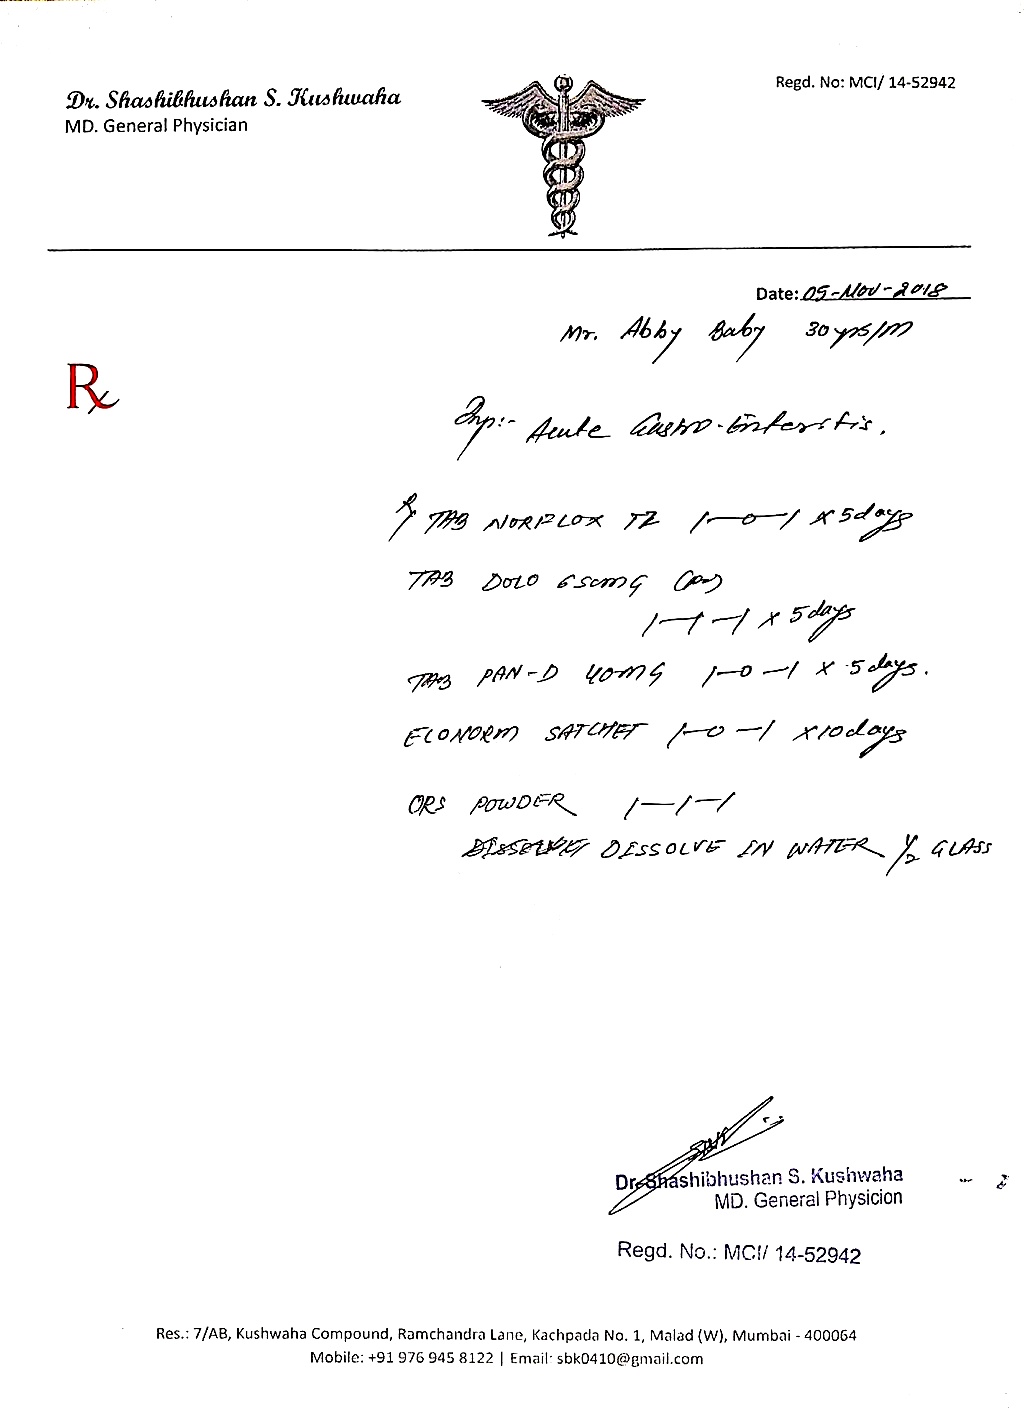 Dr. Shashibhushan S. Kushwaha
MD. General Physician
Regd. No: MCI/ 14-52942
Date: 05-Nov-2018
Mr. Abby Baby 30 yrs/M
Rx
Imp:- Acute Gastro-Enteritis.
TAB NORFLOX TZ 1—0—1 x 5 days
TAB DOLO 650MG
1—1—1 x 5 days
TAB PAN-D 40MG 1—0—1 x 5 days.
ECONORM SATCHET 1—0—1 x 10 days
ORS POWDER 1—1—1
DISSOLVE IN WATER 1/2 GLASS
SBK
Dr. Shashibhushan S. Kushwaha
MD. General Physicion
Regd. No.: MCI/ 14-52942
Res.: 7/AB, Kushwaha Compound, Ramchandra Lane, Kachpada No. 1, Malad (W), Mumbai - 400064
Mobile: +91 976 945 8122 | Email: sbk0410@gmail.com